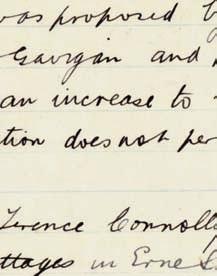 was proposed by
Gavigan and
an increase to
tion does not per
Terence Connolly
ttages in Erne S